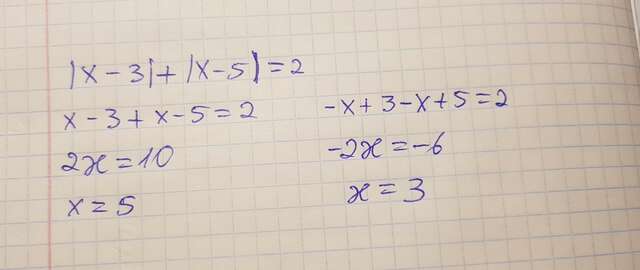 |x - 3| + |x - 5| = 2
x - 3 + x - 5 = 2
2x = 10
x = 5
-x + 3 - x + 5 = 2
-2x = -6
x = 3